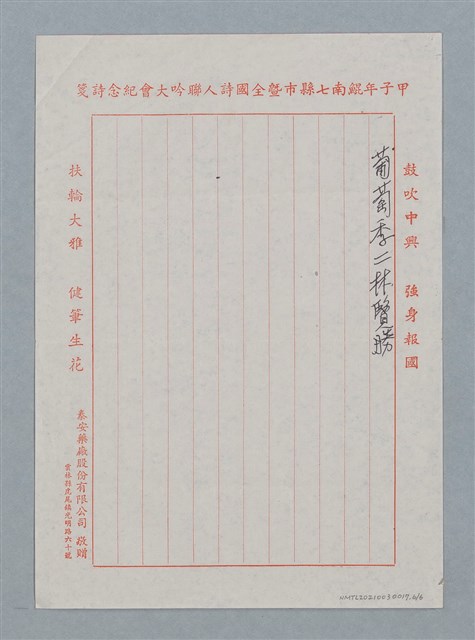 甲子年鯤南七縣市暨全國詩人聯吟大會紀念詩箋
鼓吹中興 強身報國
葡萄季二林覽勝
扶輪大雅 健筆生花
泰安藥廠股份有限公司 敬贈
雲林縣虎尾鎮光明路六十號
NMTL20210030019.6/6